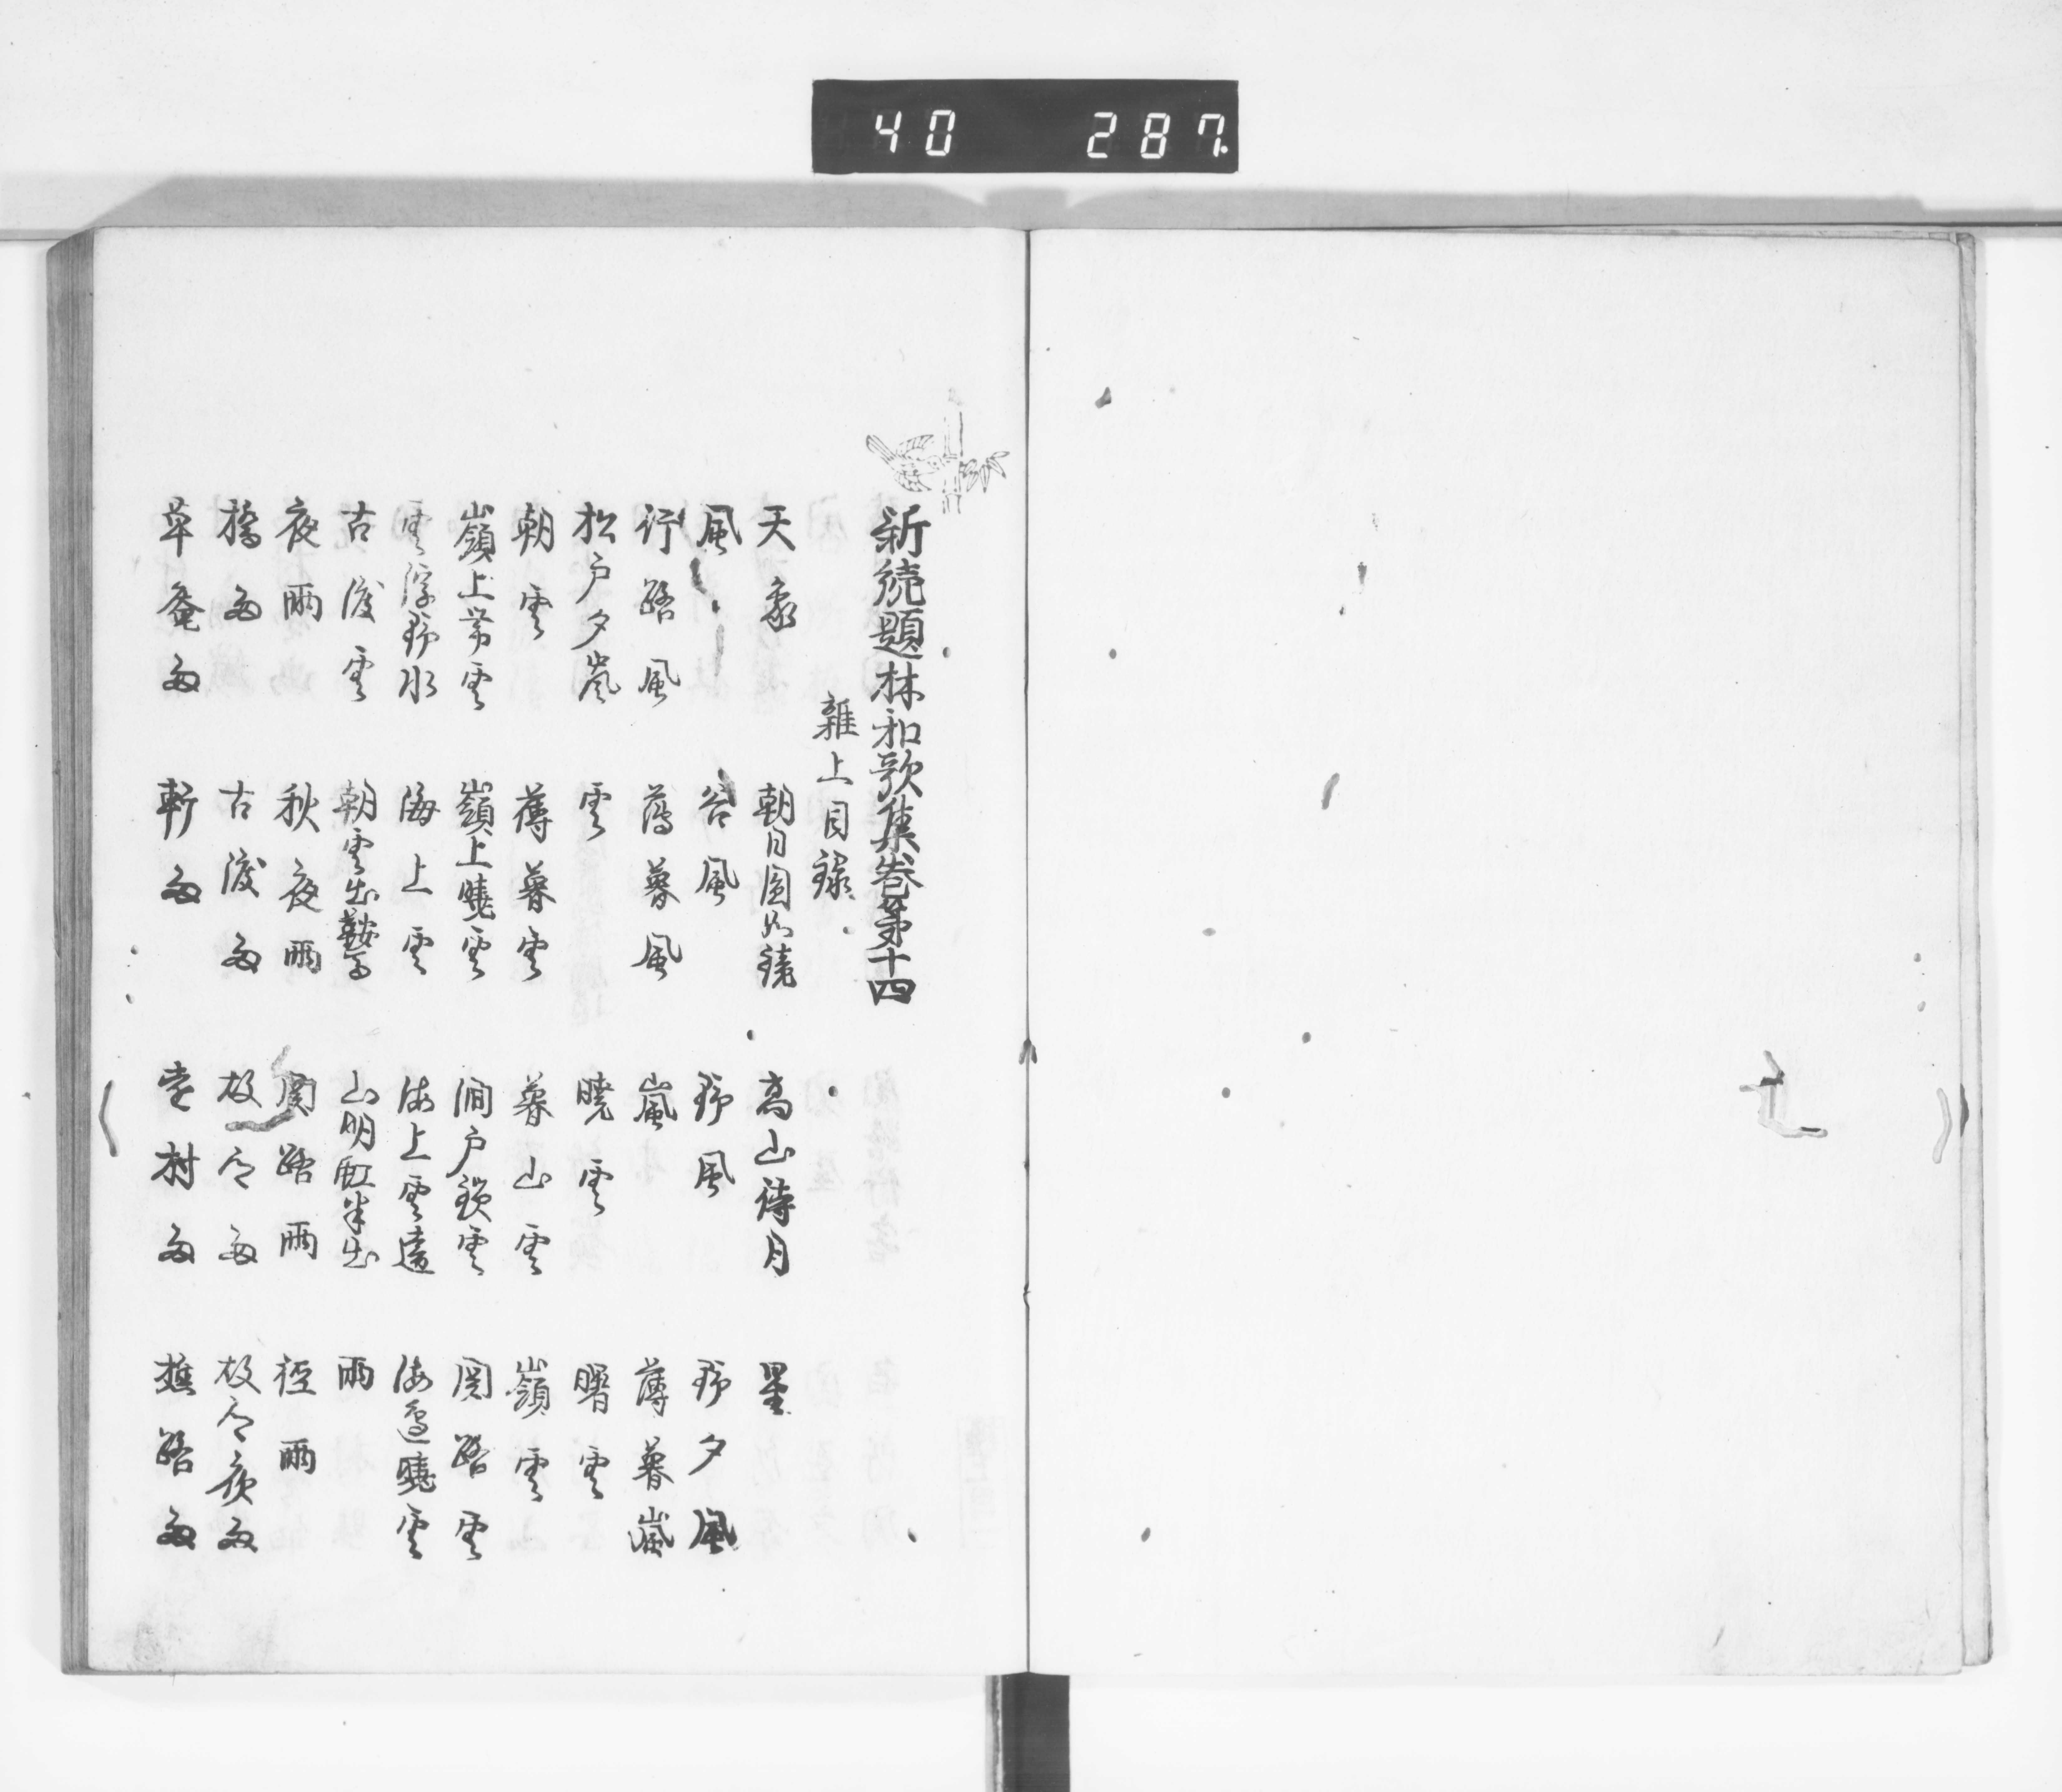 40 287
新続題林和歌集巻第十四
雑上目録
天象 朝日圓如鏡 高山待月 星
風 谷風 野風 野夕風
行路風 薄暮風 嵐 薄暮嵐
松戸夕嵐 雲 暁雲 曙雲
朝雲 薄暮雲 暮山雲 嶺雲
嶺上帯雲 嶺上暁雲 澗戸鎖雲 関路雲
雲浮野水 海上雲 海上雲遠 海辺暁雲
古渡雲 朝雲出鞍馬 山明虹半出 雨
夜雨 秋夜雨 関路雨 径雨
橋雨 古渡雨 故郷雨 故郷夜雨
草庵雨 軒雨 遠村雨 樵路雨